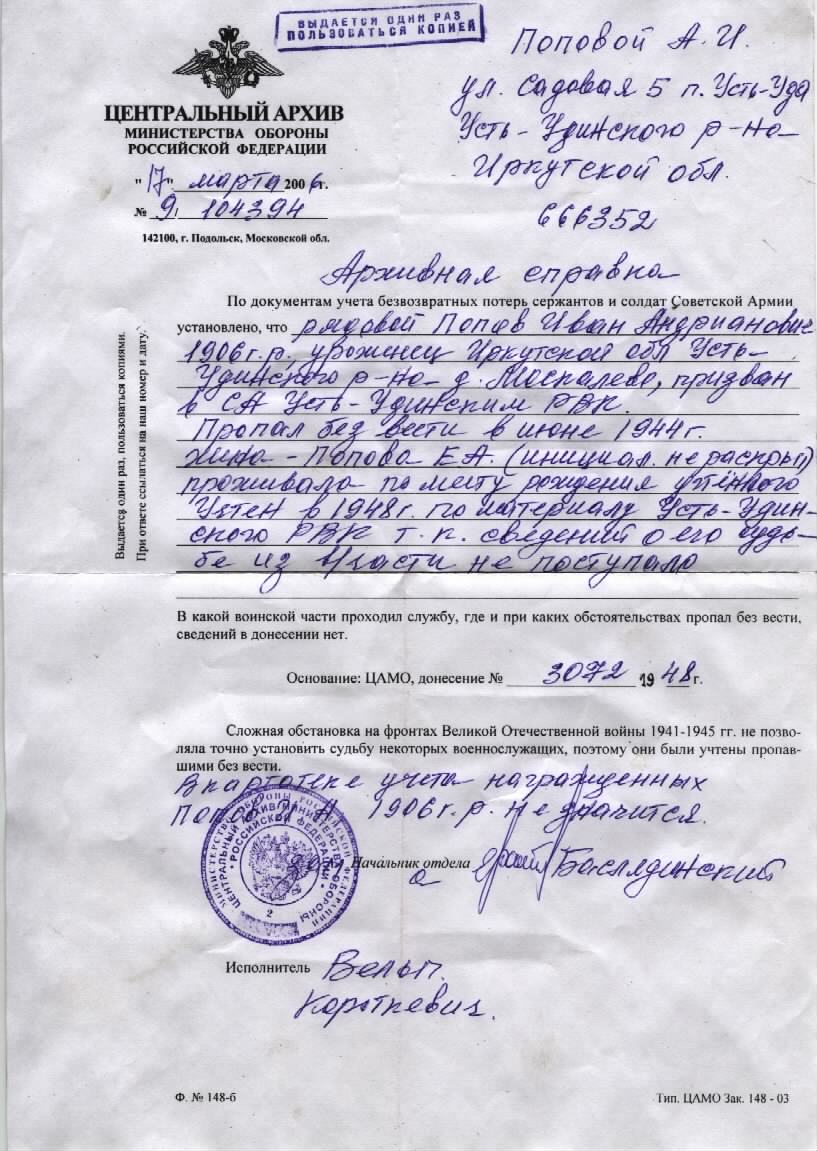 ВЫДАЕТСЯ ОДИН РАЗ
ПОЛЬЗОВАТЬСЯ КОПИЕЙ
ЦЕНТРАЛЬНЫЙ АРХИВ
МИНИСТЕРСТВА ОБОРОНЫ
РОССИЙСКОЙ ФЕДЕРАЦИИ
"17" марта 2006 г.
№ 9/ 104394
142100, г. Подольск, Московской обл.
Поповой А. И.
ул. Садовая 5 п. Усть-Уда
Усть-Удинского р-на
Иркутской обл.
666352
Архивная справка
По документам учета безвозвратных потерь сержантов и солдат Советской Армии
установлено, что рядовой Попов Иван Андрианович
1906 г.р., уроженец Иркутской обл Усть-
Удинского р-на д. Москалево, призван
в СА Усть-Удинским РВК.
Пропал без вести в июне 1944 г.
жена - Попова Е.А. (инициал. не раскрыт)
проживала по месту рождения учтённого
Учтен в 1948 г. по материалу Усть-Удин-
ского РВК т. к. сведений о его судь-
бе из в/части не поступало
Выдается один раз, пользоваться копиями.
При ответе ссылаться на наш номер и дату.
В какой воинской части проходил службу, где и при каких обстоятельствах пропал без вести,
сведений в донесении нет.
Основание: ЦАМО, донесение № 3072 1948 г.
Сложная обстановка на фронтах Великой Отечественной войны 1941-1945 гг. не позво-
ляла точно установить судьбу некоторых военнослужащих, поэтому они были учтены пропав-
шими без вести.
В картотеке учета награжденных
Попов И. А 1906 г.р. не значится.
ЦЕНТРАЛЬНЫЙ АРХИВ МИНИСТЕРСТВА ОБОРОНЫ
РОССИЙСКОЙ ФЕДЕРАЦИИ
2
Начальник отдела
Исполнитель Вельп.
Короткевич.
Ф. № 148-б
Тип. ЦАМО Зак. 148 - 03